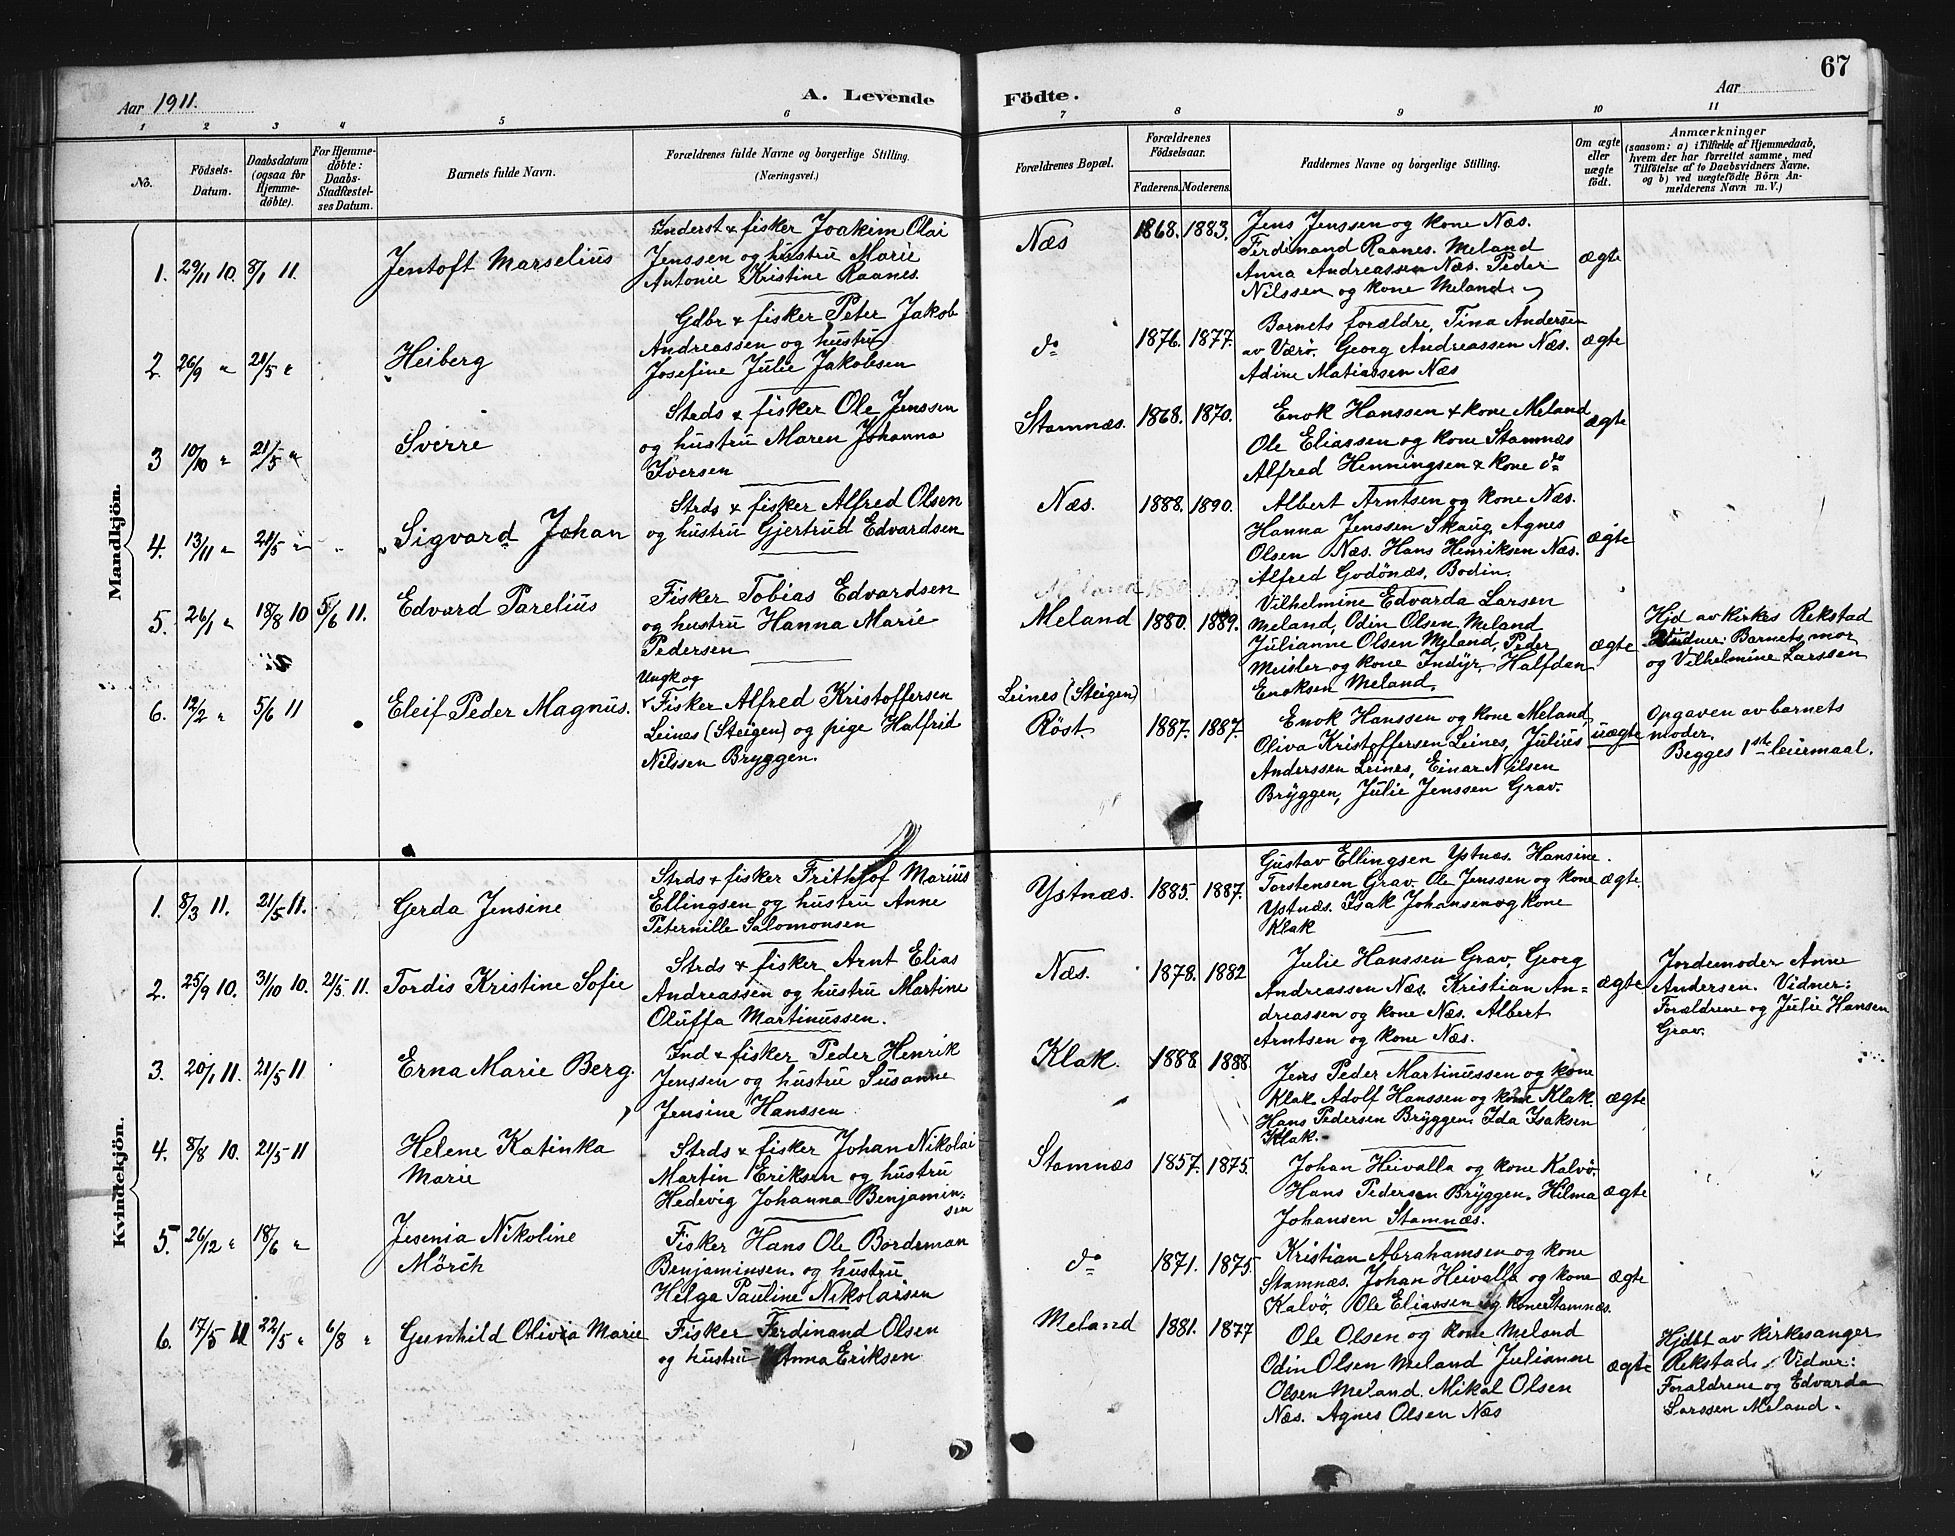 Aar 1911.
A. Levende Födte.
Aar
67
1 2 3 4 5 6 7 8 9 10 11
No.
Födsels-Datum.
Daabsdatum (ogsaa for Hjemme-döbte).
For Hjemme-döbte: Daabs-Stadfæstel-ses Datum.
Barnets fulde Navn.
Forældrenes fulde Navne og borgerlige Stilling. (Næringsvei.)
Forældrenes Bopæl.
Forældrenes Födselsaar.
Faderens. Moderens.
Faddernes Navne og borgerlige Stilling.
Om ægte eller uægte födt.
Anmærkninger
(saasom: a) i Tilfælde af Hjemmedaab,
hvem der har forrettet samme, med
Tilföielse af to Daabsvidners Navne,
og b) ved uægtefödte Börn An-
melderens Navn m. V.)
Mandkjön.
1. 29/11 10. 8/1 11. Jentoft Marselius
Inderst & fisker Joakim Olai
Jenssen og hustru Marie
Antonie Kristine Raanes.
Næs 1868. 1883.
Jens Jenssen og kone Næs.
Ferdinand Raanes. Meland
Anna Andreassen Næs. Peder
Nilssen og kone Meland.
ægte
2 26/9 " 21/5 " Heiberg
Gdbr & fisker Peter Jakob
Andreassen og hustru
Josefine Julie Jakobsen
do 1876. 1877.
Barnets forældre, Tina Andersen
av Værö. Georg Andreassen Næs.
Adine Matiassen Næs
ægte
3 10/10 " 21/5 " Sverre
Strds & fisker Ole Jenssen
og hustru Maren Johanna
Iversen
Stamnæs. 1868. 1870.
Enok Hanssen & kone Meland
Ole Eliassen og kone Stamnæs
Alfred Henningsen & kone do
ægte
4. 13/11 " 21/5 " Sigvard Johan
Strds & fisker Alfred Olsen
og hustru Gjertrud Edvardsen
Næs. 1888. 1890.
Albert Arntsen og kone Næs.
Hanna Jenssen Skaug. Agnes
Olsen Næs. Hans Henriksen Næs.
Alfred Godönæs, Bodin.
ægte
5. 26/1 " 18/8 10 5/6 11. Edvard Parelius
Fisker Tobias Edvardsen
og hustru Hanna Marie
Pedersen
Meland 1880. 1889.
Vilhelmine Edvarda Larsen
Meland, Odin Olsen Meland
Julianne Olsen Meland, Peder
Meisler og kone Indyr, Halfdan
Enoksen Meland.
ægte
Hjd av kirkes Rekstad
Vidner: Barnets mor
og Vilhelmine Larssen
6. 12/2 " 5/6 11 Eleif Peder Magnus.
Ungk og
Fisker Alfred Kristoffersen
Leines (Steigen) og pige Halfrid
Nilssen Bryggen.
Leines (Steigen)
Röst. 1887. 1887.
Enok Hanssen og kone Meland
Oliva Kristoffersen Leines, Julius
Anderssen Leines, Einar Nilsen
Bryggen, Julie Jenssen Grav.
uægte
Opgaven av barnets
moder.
Begges 1ste leiermaal.
Kvindekjön.
1. 8/3 11. 21/5 11. Gerda Jensine
Strds & fisker Frithjof Marius
Ellingsen og hustru Anne
Peternille Salomonsen
Ystnæs. 1885. 1887.
Gustav Ellingsen Ystnæs. Hansine
Torstensen Grav. Ole Jenssen og kone
Ystnæs. Isak Johansen og kone
Klak
ægte.
2. 25/9 10. 31/10 10. 21/5 11. Tordis Kristine Sofie
Strds & fisker Arnt Elias
Andreassen og hustru Martine
Oluffa Martinussen.
Næs. 1878. 1882
Julie Hanssen Grav. Georg
Andreassen Næs. Kristian An=
dreassen og kone Næs. Albert
Arntsen og kone Næs.
ægte
Jordemoder Anne
Andersen. Vidner:
Forældrene og Julie Hansen
Grav.
3. 20/1 11. 21/5 11 Erna Marie Berg.
Ind & fisker Peder Henrik
Jenssen og hustru Susanne
Jensine Hanssen
Klak. 1888. 1888.
Jens Peder Martinussen og kone
Klak Adolf Hanssen og kone Klak.
Hans Pedersen Bryggen. Ida Isaksen
Klak.
ægte
4. 8/8 10. 21/5 11 Helene Katinka
Marie
Strds & fisker Johan Nikolai
Martin Eriksen og hustru
Hedevig Johanna Benjamin=
sen
Stamnæs 1857. 1875.
Johan Heivalla og kone Kalvö.
Hans Pedersen Bryggen. Hilma
Johansen Stamnæs.
ægte
5. 26/12 " 18/6 " Jesenia Nikoline
Mörch
Fisker Hans Ole Bordeman
Benjaminsen. og hustru
Helga Pauline Nikolaisen
do 1871. 1875.
Kristian Abrahamsen og kone
Stamnæs. Johan Heivalla og kone
Kalvö. Ole Eliassen og kone Stamnæs.
ægte
6. 17/5 11 22/5 " 6/8 " Gunhild Olivia Marie
Fisker Ferdinand Olsen
og hustru Anna Eriksen
Meland 1881. 1877
Ole Olsen og kone Meland
Odin Olsen Meland Julianne
Olsen Meland. Mikal Olsen
Næs. Agnes Olsen Næs
ægte
Hjdbt av kirkesanger
Rekstad. Vidner:
Forældrene og Edvarda
Larssen Meland.